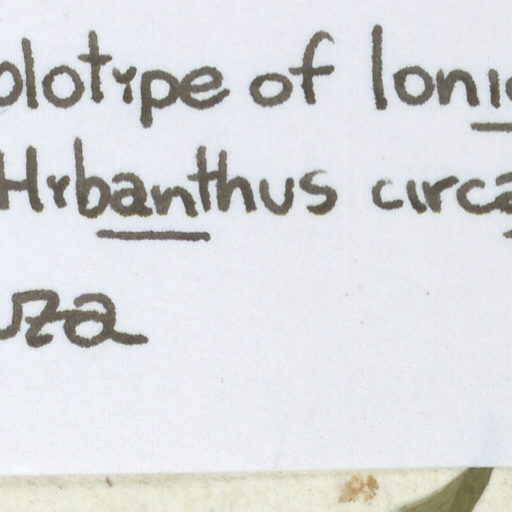 olotype of Ioni
Hybanthus circa
uza